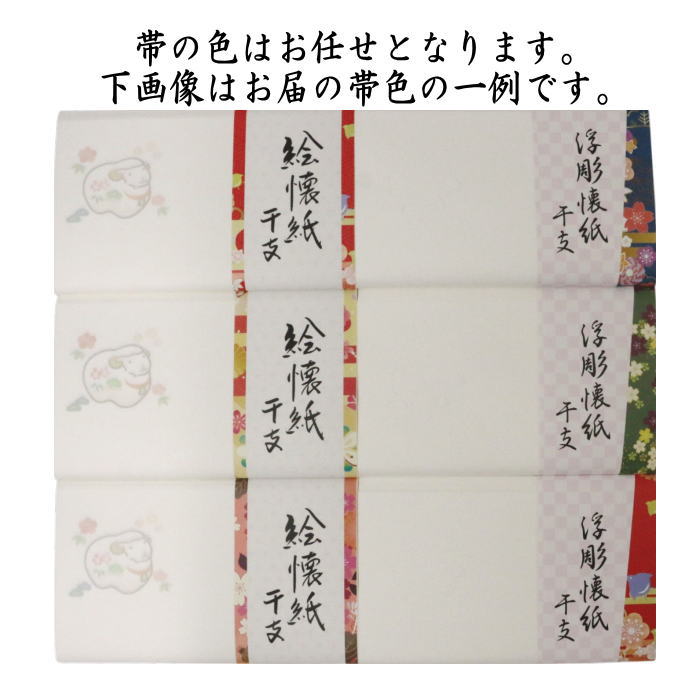 帯の色はお任せとなります。
下画像はお届の帯色の一例です。
絵懐紙
干支
浮彫懐紙
干支
絵懐紙
干支
浮彫懐紙
干支
絵懐紙
干支
浮彫懐紙
干支